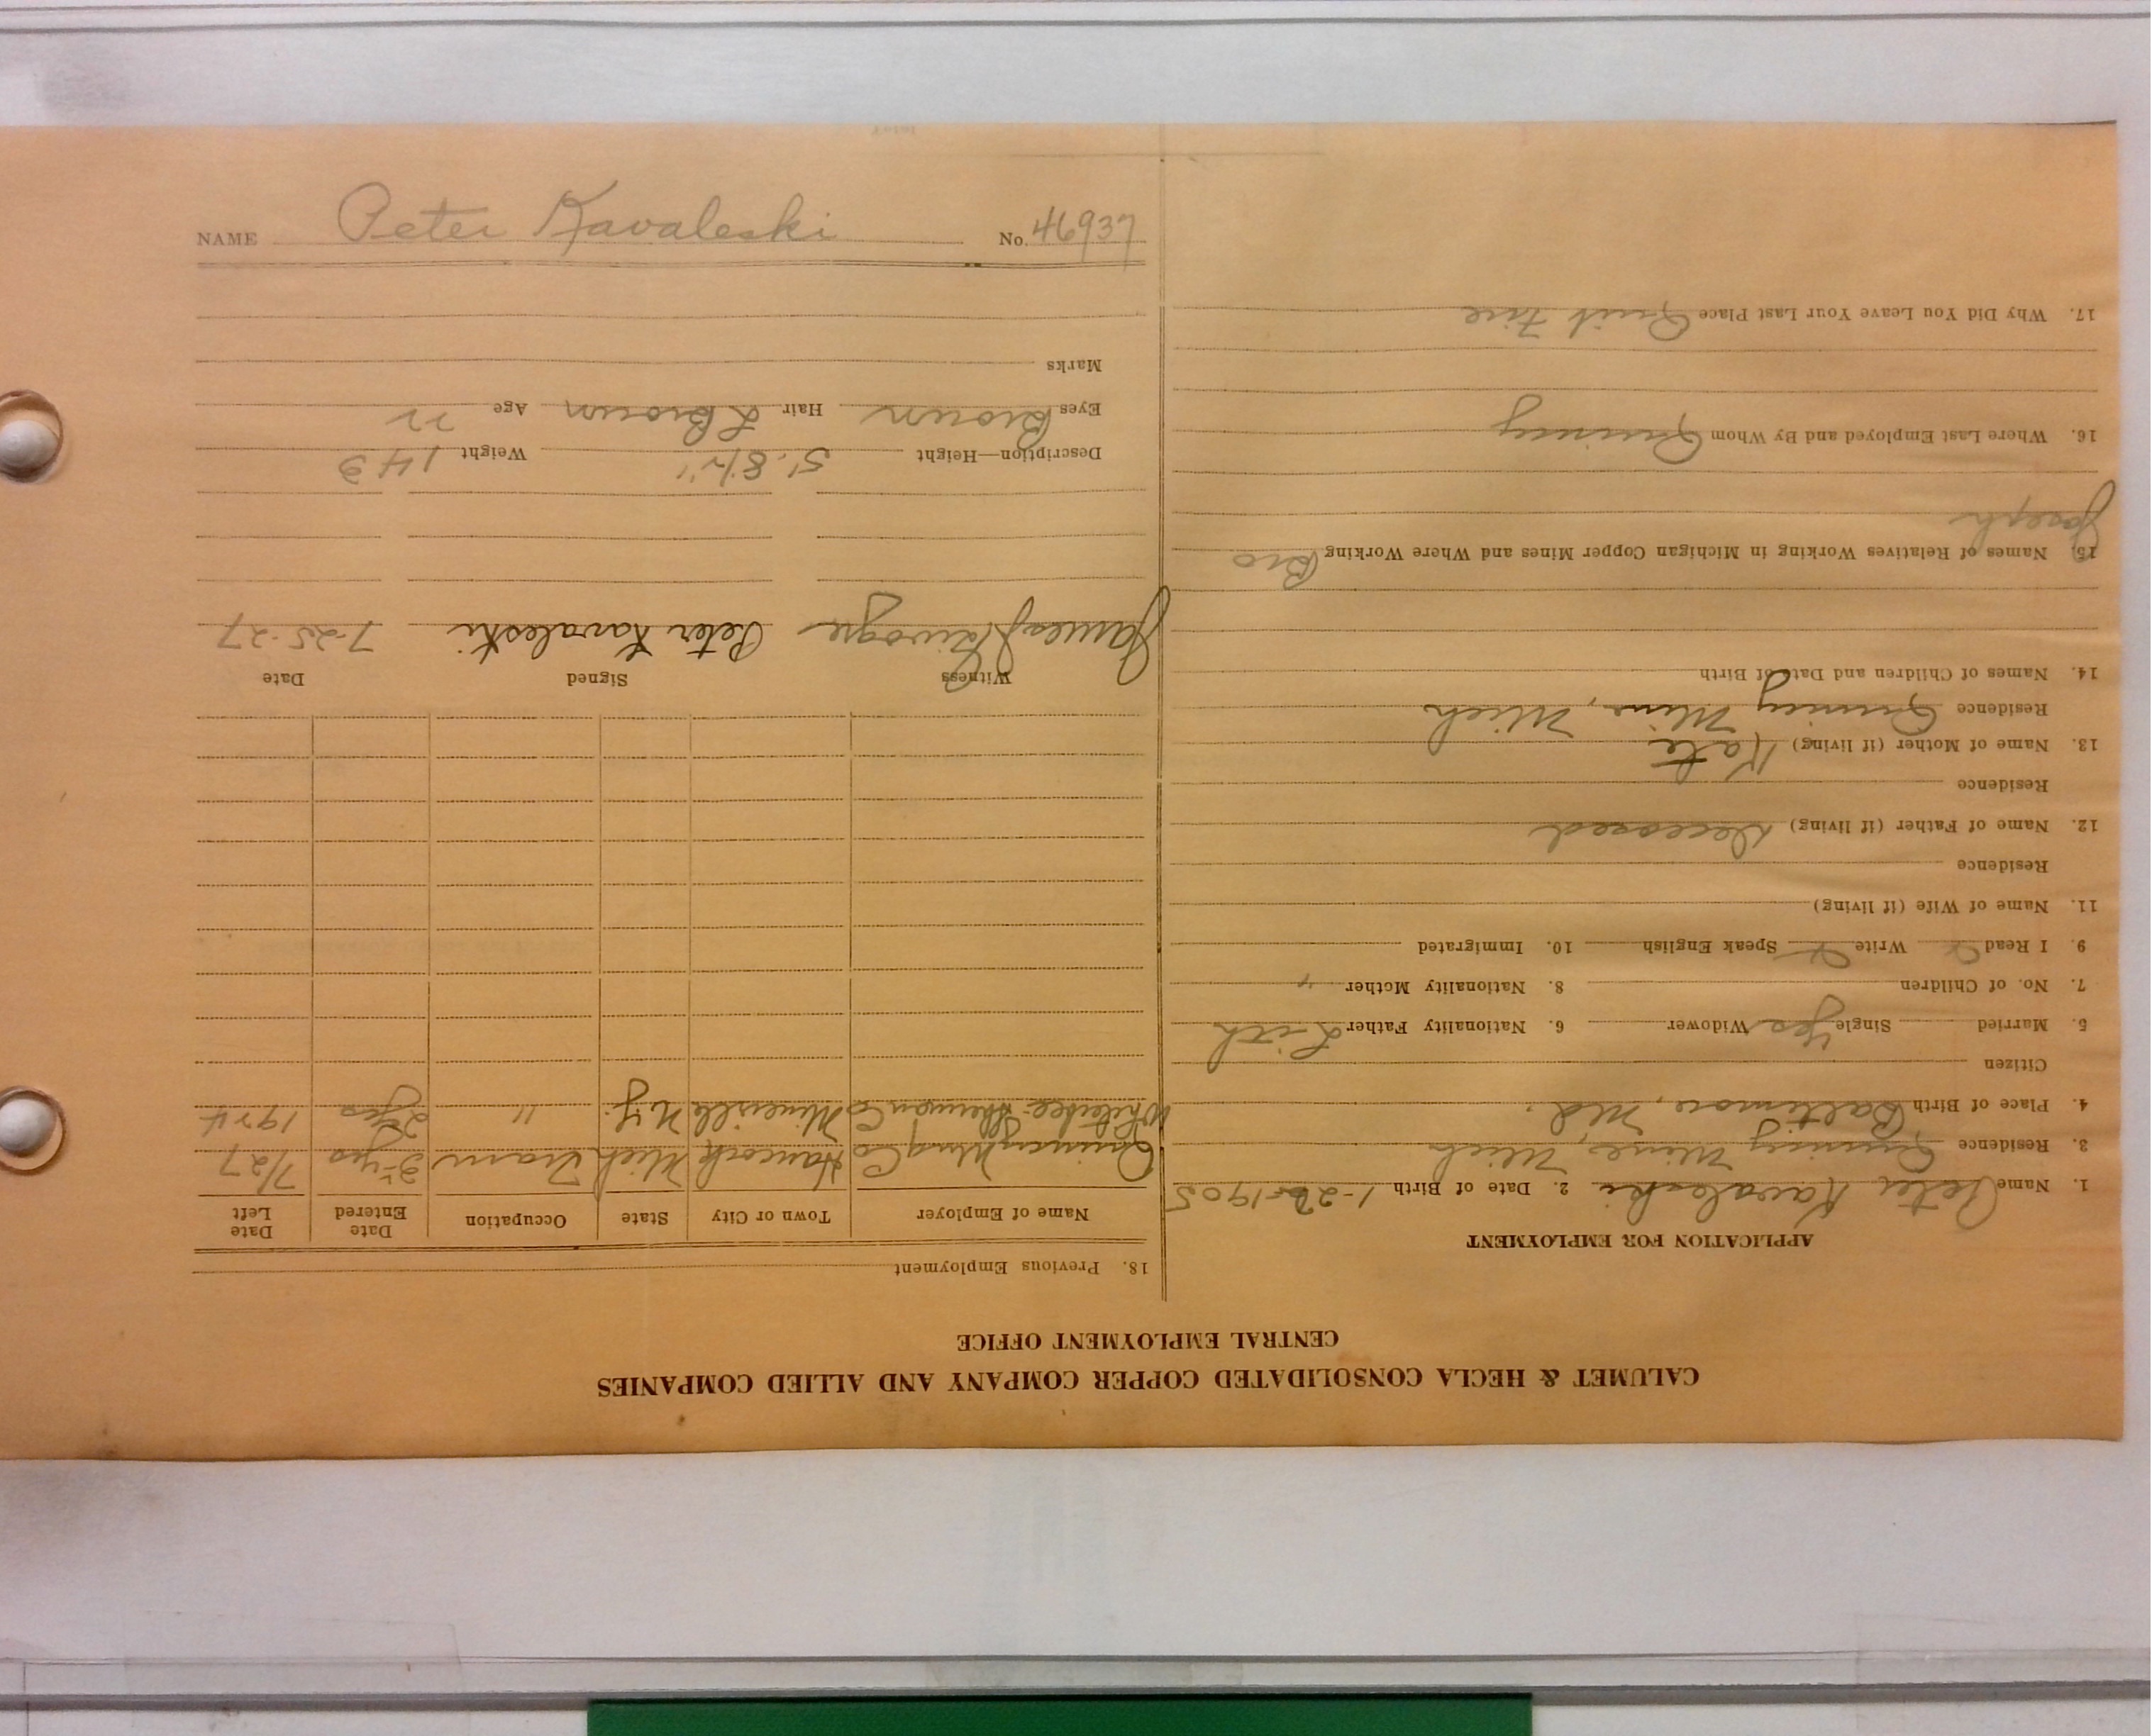 CALUMET & HECLA CONSOLIDATED COPPER COMPANY AND ALLIED COMPANIES
CENTRAL EMPLOYMENT OFFICE
APPLICATION FOR EMPLOYMENT
1. Name Peter Kavaleski 2. Date of Birth 1-26-1905
3. Residence Quincy Mine, Mich
4. Place of Birth Baltimore, Md.
Citizen
5. Married Single Yes Widower 6. Nationality Father Lith
7. No. of Children 8. Nationality Mother "
9. I Read Write Speak English 10. Immigrated
11. Name of Wife (if living)
Residence
12. Name of Father (if living) Deceased
Residence
13. Name of Mother (if living) Kate
Residence Quincy Mine, Mich
14. Names of Children and Date of Birth
15. Names of Relatives Working in Michigan Copper Mines and Where Working Bro
Joseph
16. Where Last Employed and By Whom Quincy
17. Why Did You Leave Your Last Place Quit
18. Previous Employment
Name of Employer Town or City State Occupation Date Entered Date Left
Quincy Mng Co Hancock Mich Tram 3 yrs 7/27
Witherbee Sherman Co Mineville N.Y. " 2 yrs 1924
Witness Signed Date
James Peter Kavaleski 7-25-27
Description—Height 5' 8 1/2" Weight 143
Eyes Brown Hair L Brown Age 22
Marks
NAME Peter Kavaleski No. 46937